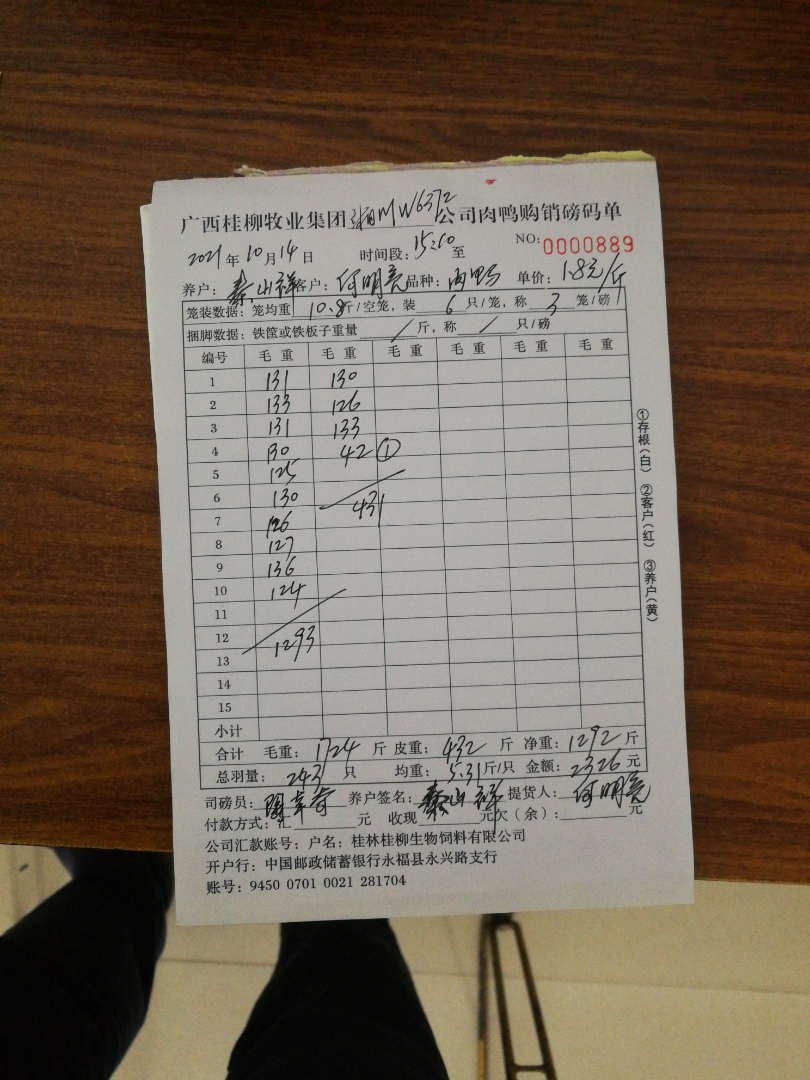 广西桂柳牧业集团湘M W6372公司肉鸭购销磅码单
2021年10月14日 时间段：15:10至 NO：0000889
养户：秦山祥 客户：何明亮 品种：肉鸭 单价：1.8元/斤
笼装数据：笼均重 10.8斤/空笼，装 6 只/笼，称 3 笼/磅
捆脚数据：铁筐或铁板子重量 / 斤，称 / 只/磅
编号 毛重 毛重 毛重 毛重 毛重 毛重
1 131 130
2 133 126
3 131 133
4 130 42 ①
5 125
6 130 431
7 126
8 127
9 136
10 124
11
12 1293
13
14
15
小计
合计 毛重：1724 斤 皮重：432 斤 净重：1292 斤
总羽量：243 只 均重：5.31斤/只 金额：2326元
司磅员： 养户签名：秦山祥 提货人：何明亮
付款方式：汇 元 收现 元欠（余）： 元
公司汇款账号：户名：桂林桂柳生物饲料有限公司
开户行：中国邮政储蓄银行永福县永兴路支行
账号：9450 0701 0021 281704
①存根（白） ②客户（红） ③养户（黄）